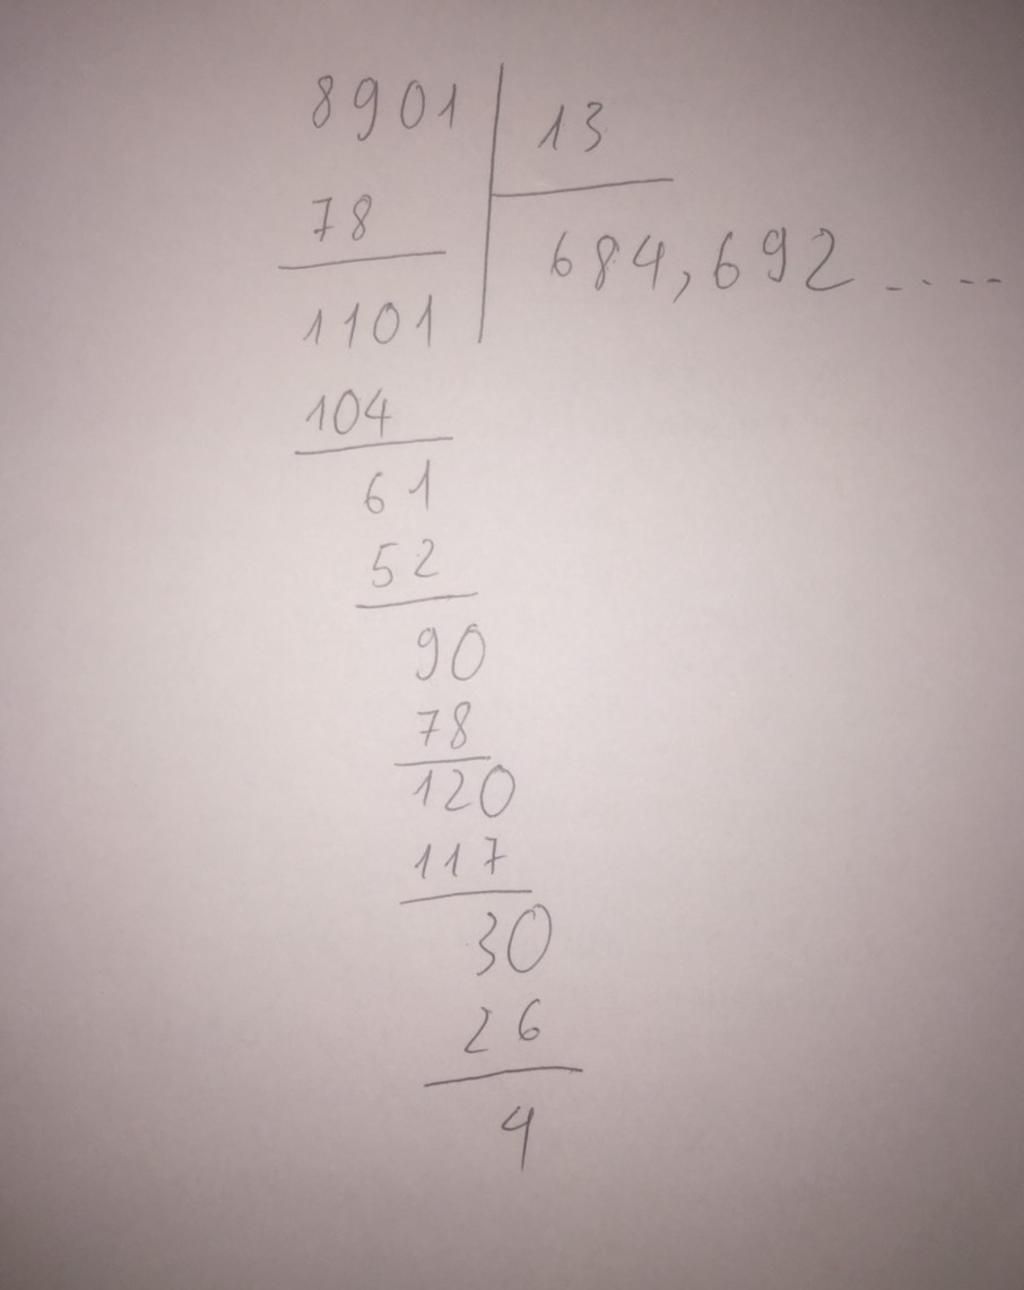 8901 13
78
684,692 ....
1101
104
61
52
90
78
120
117
30
26
4